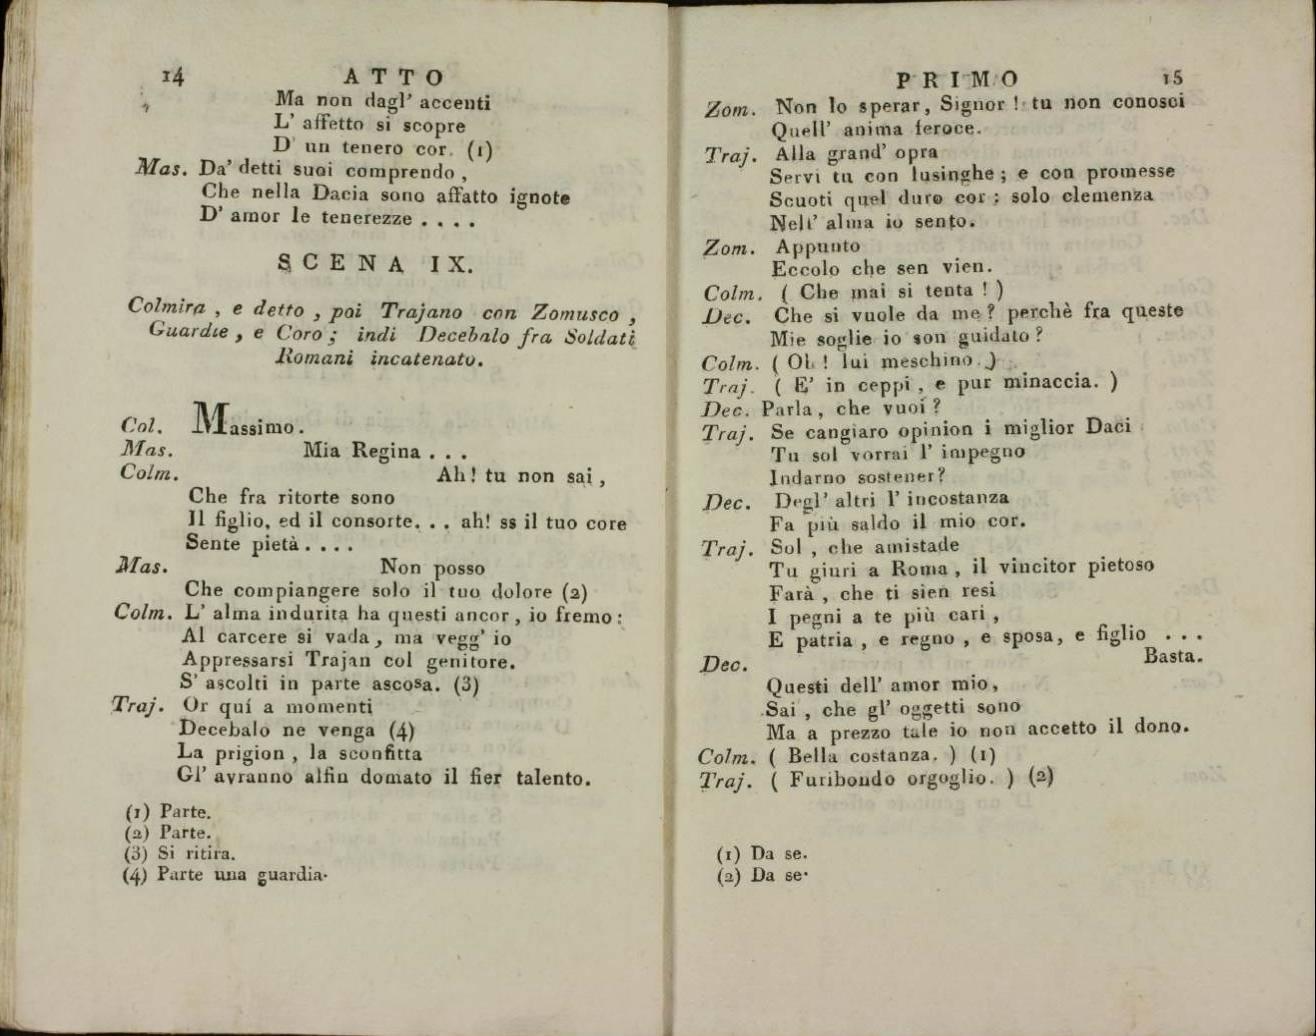 14 ATTO
Ma non dagl' accenti
L' affetto si scopre
D' un tenero cor. (1)
Mas. Da' detti suoi comprendo,
Che nella Dacia sono affatto ignote
D' amor le tenerezze . . . .
SCENA IX.
Colmira, e detto, poi Trajano con Zomusco,
Guardie, e Coro; indi Decebalo fra Soldati
Romani incatenato.
Col. Massimo.
Mas. Mia Regina . . .
Colm. Ah! tu non sai,
Che fra ritorte sono
Il figlio, ed il consorte. . . ah! ss il tuo core
Sente pietà . . . .
Mas. Non posso
Che compiangere solo il tuo dolore (2)
Colm. L' alma indurita ha questi ancor, io fremo:
Al carcere si vada, ma vegg' io
Appressarsi Trajan col genitore.
S' ascolti in parte ascosa. (3)
Traj. Or quí a momenti
Decebalo ne venga (4)
La prigion, la sconfitta
Gl' avranno alfin domato il fier talento.
(1) Parte.
(2) Parte.
(3) Si ritira.
(4) Parte una guardia.
PRIMO 15
Zom. Non lo sperar, Signor! tu non conosci
Quell' anima feroce.
Traj. Alla grand' opra
Servi tu con lusinghe; e con promesse
Scuoti quel duro cor; solo clemenza
Nell' alma io sento.
Zom. Appunto
Eccolo che sen vien.
Colm. ( Che mai si tenta! )
Dec. Che si vuole da me? perchè fra queste
Mie soglie io son guidato?
Colm. ( Oh! lui meschino. )
Traj. ( E' in ceppi, e pur minaccia. )
Dec. Parla, che vuoi?
Traj. Se cangiaro opinion i miglior Daci
Tu sol vorrai l' impegno
Indarno sostener?
Dec. Degl' altri l' incostanza
Fa più saldo il mio cor.
Traj. Sol, che amistade
Tu giuri a Roma, il vincitor pietoso
Farà, che ti sien resi
I pegni a te più cari,
E patria, e regno, e sposa, e figlio . . .
Dec. Basta.
Questi dell' amor mio,
Sai, che gl' oggetti sono
Ma a prezzo tale io non accetto il dono.
Colm. ( Bella costanza. ) (1)
Traj. ( Furibondo orgoglio. ) (2)
(1) Da se.
(2) Da se.